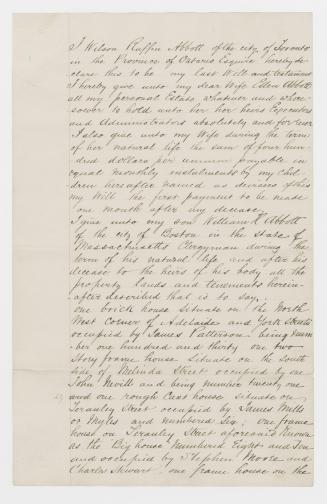 I Wilson Ruffin Abbott of the city of Toronto
in the Province of Ontario Esquire hereby de
clare this to be my last Will and testament
I hereby give unto my dear Wife Ellen Abbott
all my personal Estate whatever and where
soever to hold unto her heirs Executors
and Administrators absolutely and for ever
I also give unto my Wife during the term
of her natural life the sum of four hun-
dred dollars per annum payable in
equal monthly instalments by my Chil-
dren hereafter named as devisees of this
my Will the first payment to be made
one month after my decease.
I give unto my son William Abbott
of the city of Boston in the State of
Massachusetts Clergyman during the
term of his natural life, and after his
decease to the heirs of his body all the
property lands and tenements herein-
-after described that is to say.
one brick house situate on the North
West Corner of Adelaide and York Streets
occupied by James Patterson being num
ber one hundred and thirty one two
Story frame house situate on the South
side of Melinda Street occupied by one
John Nevill and being number twenty one
and one rough Cast house situate on
Terauley Street occupied by James Mills
or Myles and numbered Six; one frame
house on Terauley Street aforesaid Known
as the Big house Numbered Eight and Ten
and occupied by Stephen Moore and
Charles Stewart, one frame house on the